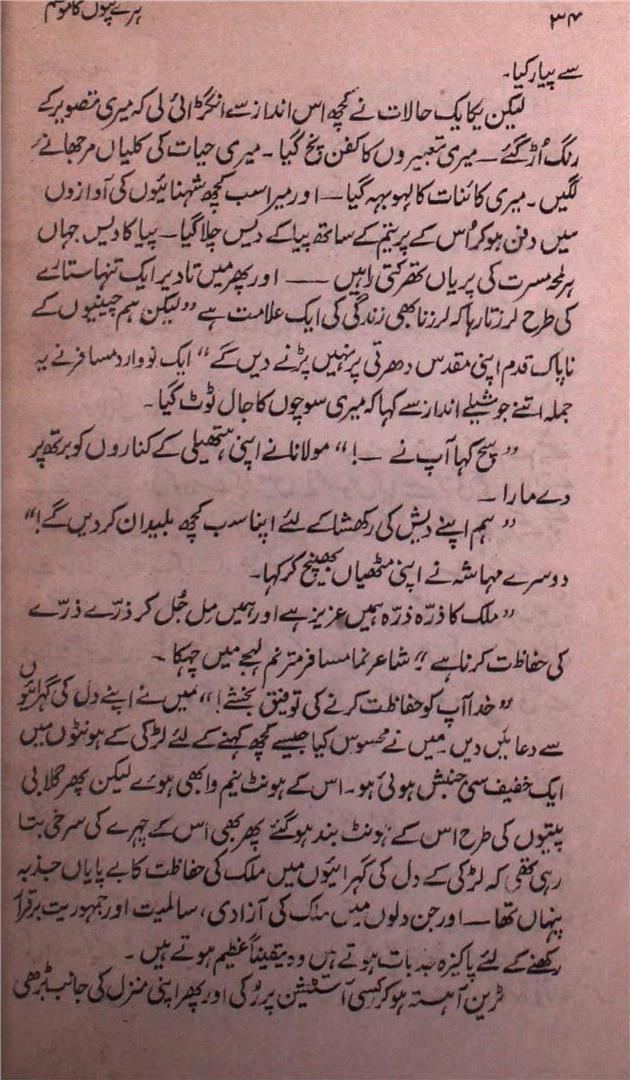 ۳۴
ہرے پتوں کا موسم
سے پیار کیا۔
لیکن یکایک حالات نے کچھ اس انداز سے انگڑائی لی کہ میری تصویر کے
رنگ اُڑ گئے — میری تعبیروں کا کفن پہنچ گیا۔ میری حیات کی کلیاں مرجھانے
لگیں۔ میری کائنات کا لہو بہہ گیا — اور میرا سب کچھ شہنائیوں کی آوازوں
میں دفن ہو کر اُس کے پریتم کے ساتھ پیا کے دیس چلا گیا — پیا کا دیس جہاں
ہر لمحہ مسرت کی پریاں تھرکتی راہیں —— اور پھر میں تادیر ایک تنہا ستارے
کی طرح لرزتا رہا کہ لرزنا بھی زندگی کی ایک علامت ہے ”لیکن ہم چینیوں کے
ناپاک قدم اپنی مقدس دھرتی پر نہیں پڑنے دیں گے“ ایک نووارد مسافر نے یہ
جملہ اتنے جوشیلے انداز سے کہا کہ میری سوچوں کا جال ٹوٹ گیا۔
”سچ کہا آپ نے —!“ مولانا نے اپنی ہتھیلی کے کناروں کو برتھ پر
دے مارا —
”ہم اپنے دیش کی رکھشا کے لئے اپنا سب کچھ بلیدان کر دیں گے!“
دوسرے مہاشہ نے اپنی مٹھیاں بھینچ کر کہا۔
”ملک کا ذرّہ ذرّہ ہمیں عزیز ہے اور ہمیں مِل جُل کر ذرّے ذرّے
کی حفاظت کرنا ہے“ شاعر نما مسافر مترنم لہجے میں چہکا۔
”خدا آپ کو حفاظت کرنے کی توفیق بخشے!“ میں نے اپنے دل کی گہرائیوں
سے دعائیں دیں۔ میں نے محسوس کیا جیسے کچھ کہنے کے لئے لڑکی کے ہونٹوں میں
ایک خفیف سی جنبش ہوئی ہو۔ اس کے ہونٹ نیم وا بھی ہوئے لیکن پھر گلابی
پتیوں کی طرح اس کے ہونٹ بند ہو گئے پھر بھی اس کے چہرے کی سرخی بتا
رہی تھی کہ لڑکی کے دل کی گہرائیوں میں ملک کی حفاظت کا بے پایاں جذبہ
پنہاں تھا — اور جن دلوں میں ملک کی آزادی، سالمیت اور جمہوریت برقرار
رکھنے کے لئے پاکیزہ جذبات ہوتے ہیں وہ یقیناً عظیم ہوتے ہیں۔
ٹرین آہستہ ہو کر کسی اسٹیشن پر رُکی اور پھر اپنی منزل کی جانب بڑھی